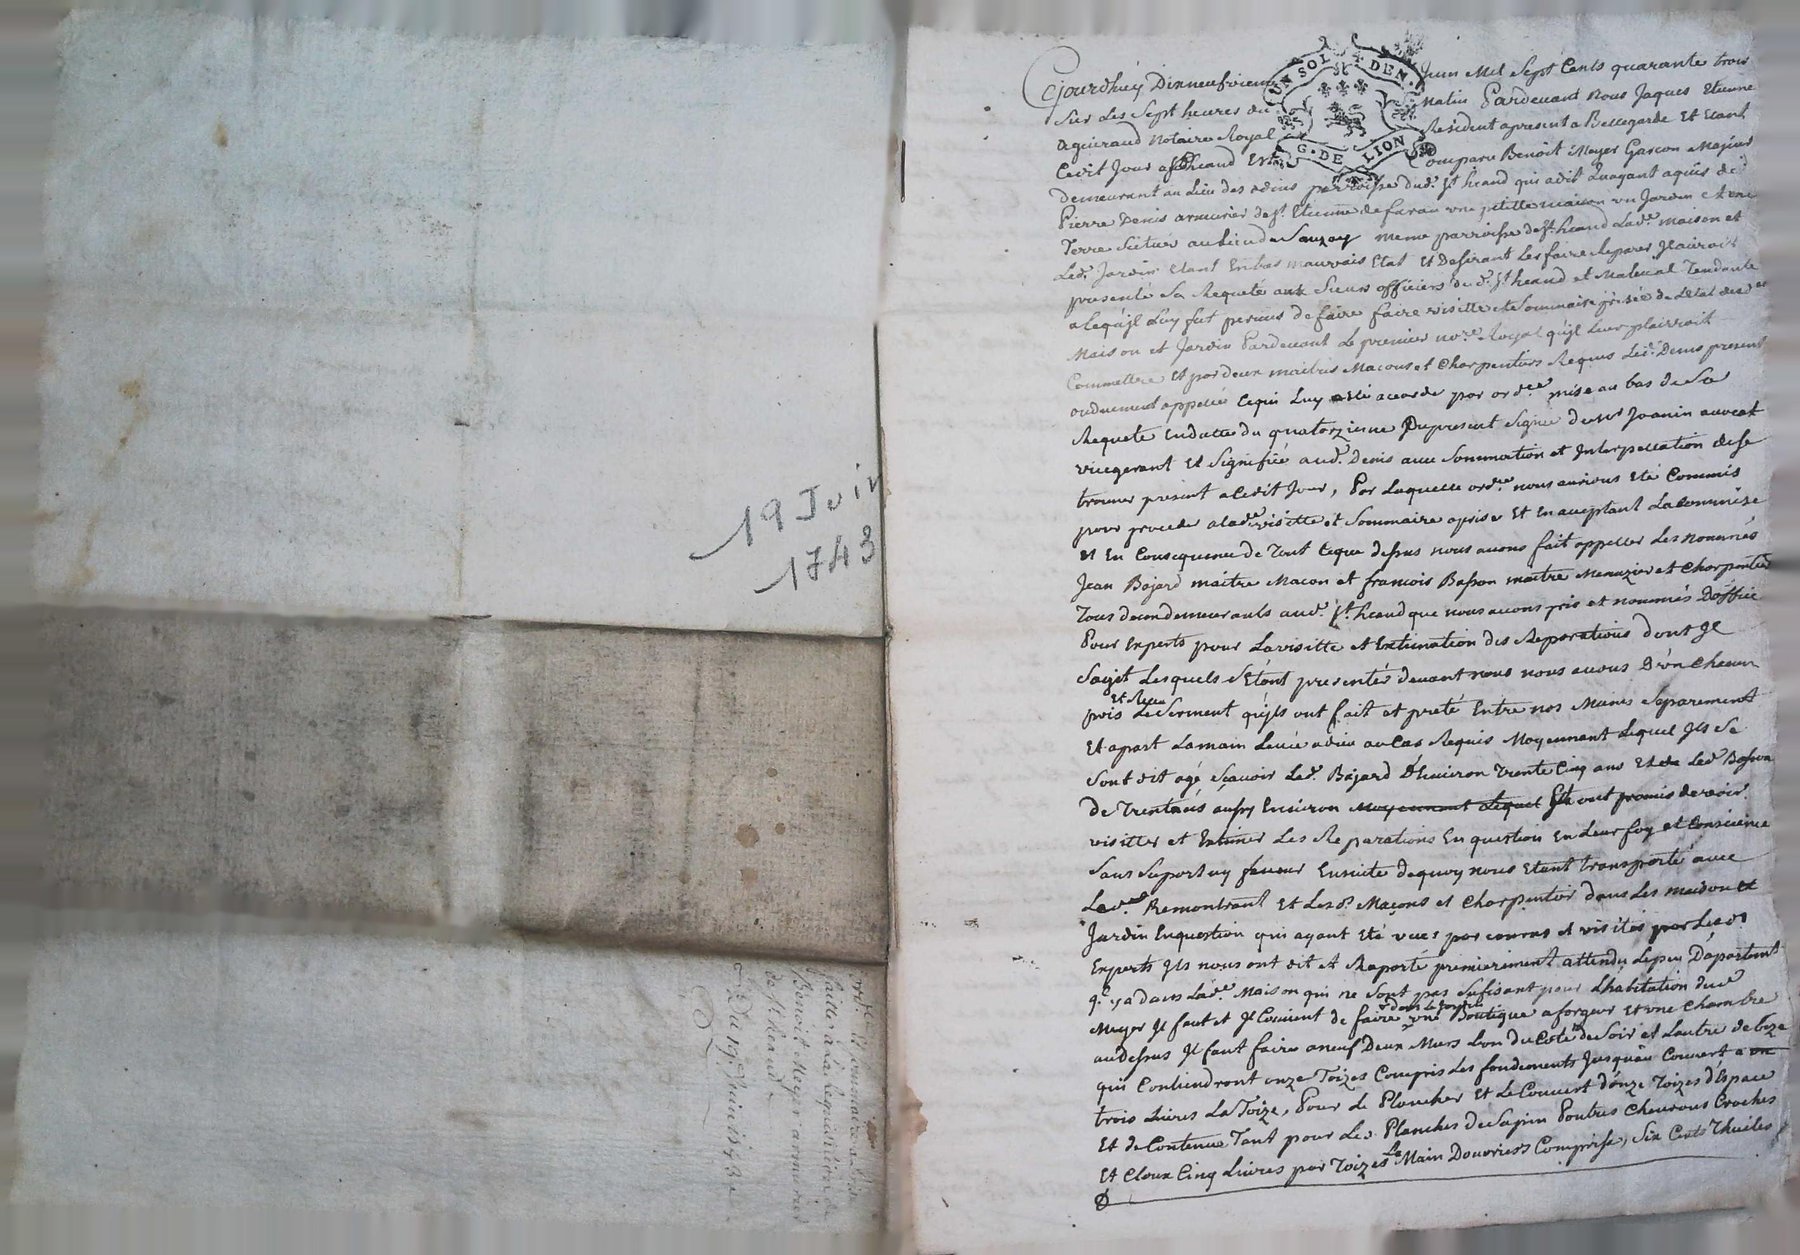 19 Juin
1743
faitte à la Requisition de
Benoit Meyer armurier
de St heand
Du 19e Juin 1743
UN SOL 4 DEN.
G. DE LION
Cejourdhuy Dixneufvieme Juin Mil Sept Cents quarante trois
Sur Les Sept heures du matin Pardevant Nous Jaques Etienne
Aguiraud Notaire Royal Resident apresent a Bellegarde Et Etant
Cedit Jour a St heand Est Comparu Benoit Meyer Garcon Majeur
demeurant au Lieu des adius parroisse dud. St heand qui a dit quayant aquis de
Pierre Denis armurier de St Etienne de furan une petitte maison un Jardin et une
Terre Scitués au Lieu de Sauzay meme parroisse de St heand Lad.e maison et
Led. Jardin Etant En bas mauvais Etat Et Desirant Les faire Reparer Jl auroit
presenté Sa Requete aux Sieurs officiers de d. St heand et Maleval Tendante
a Ceqüjl Luy fut permis de faire faire visitte et Sommaire prisée de Letat desd.es
Maison et Jardin Pardevant Le premier no.re Royal qüjl Leur plairroit
Commettre Et par deux maitres Macons et Charpentiers Requis Led. Denis present
ou duement appellé Cequi Luy a eté acordé par ord.ce mise au bas de Sa
Requete En datte du quatorzieme Du present Signée de Mr Joanin avocat
vicegerant Et Signifiée aud. Denis avec Sommation et Interpellation de Se
trouver present a Cedit Jour, Par Laquelle ord.ce nous aurions Eté Commis
pour proceder a lad.e visitte et Sommaire aprise Et En acceptant La Commise
Et En Consequence de Tout Ceque dessus nous avons fait appeller Les nommés
Jean Bajard maitre Macon et francois Basson maitre Menuzier et Charpentier
Tous deux demeurants aud. St. heand que nous avons pris et nommés Doffice
Pour Experts pour La visitte et Extimation des Reparations Dont Jl
Sagit Lesquels Sétant presentés devant nous nous avons D'un Chacun
pris et Reçu Le Serment qüjls ont fait et preté Entre nos Mains Separement
Et apart La main Levée a dieu au Cas Requis Moyennant Lequel Jls Se
Sont dit agé Scavoir Led. Bajard D'Environ Trente Cinq ans Et Led. Basson
de Trent ans aussy Environ Moyennant Lequel Jls ont promis de voir
visitter et Extimer Les Reparations En question En Leur foy et Conscience
Sans Suport ny faveur Ensuitte dequoy nous Etant transporté avec
Led. Remontrant Et Lesd. Maçons et Charpentier dans Les maison et
Jardin En question qui ayant eté vues parcourus et visités par Lesd.
Experts Jls nous ont dit et Raporté premierement attendu Le peu Dapartement
q.l ya dans Lad.e Maison qui ne Sont pas Sufisant pour Lhabitation dud.
Meyer Jl faut et Jl Convient de faire une Boutique a forgeur Et une Chambre
au dessus Jl faut faire a neuf Deux Murs Lun du Coté de Soir et Lautre de bize
qui Contiendront onze Toizes Compris Les fondements Jusquau Couvert a
trois Livres La Toize, Pour Le Plancher Et Le Couvert d'onze Toizes d'Espace
Et de Contenu Tant pour Les Planches de Sapin Poutres Chevrons Croches
Et Cloux Cinq Livres par Toizes La Main Douvriers Comprise, Six Cents Thuiles